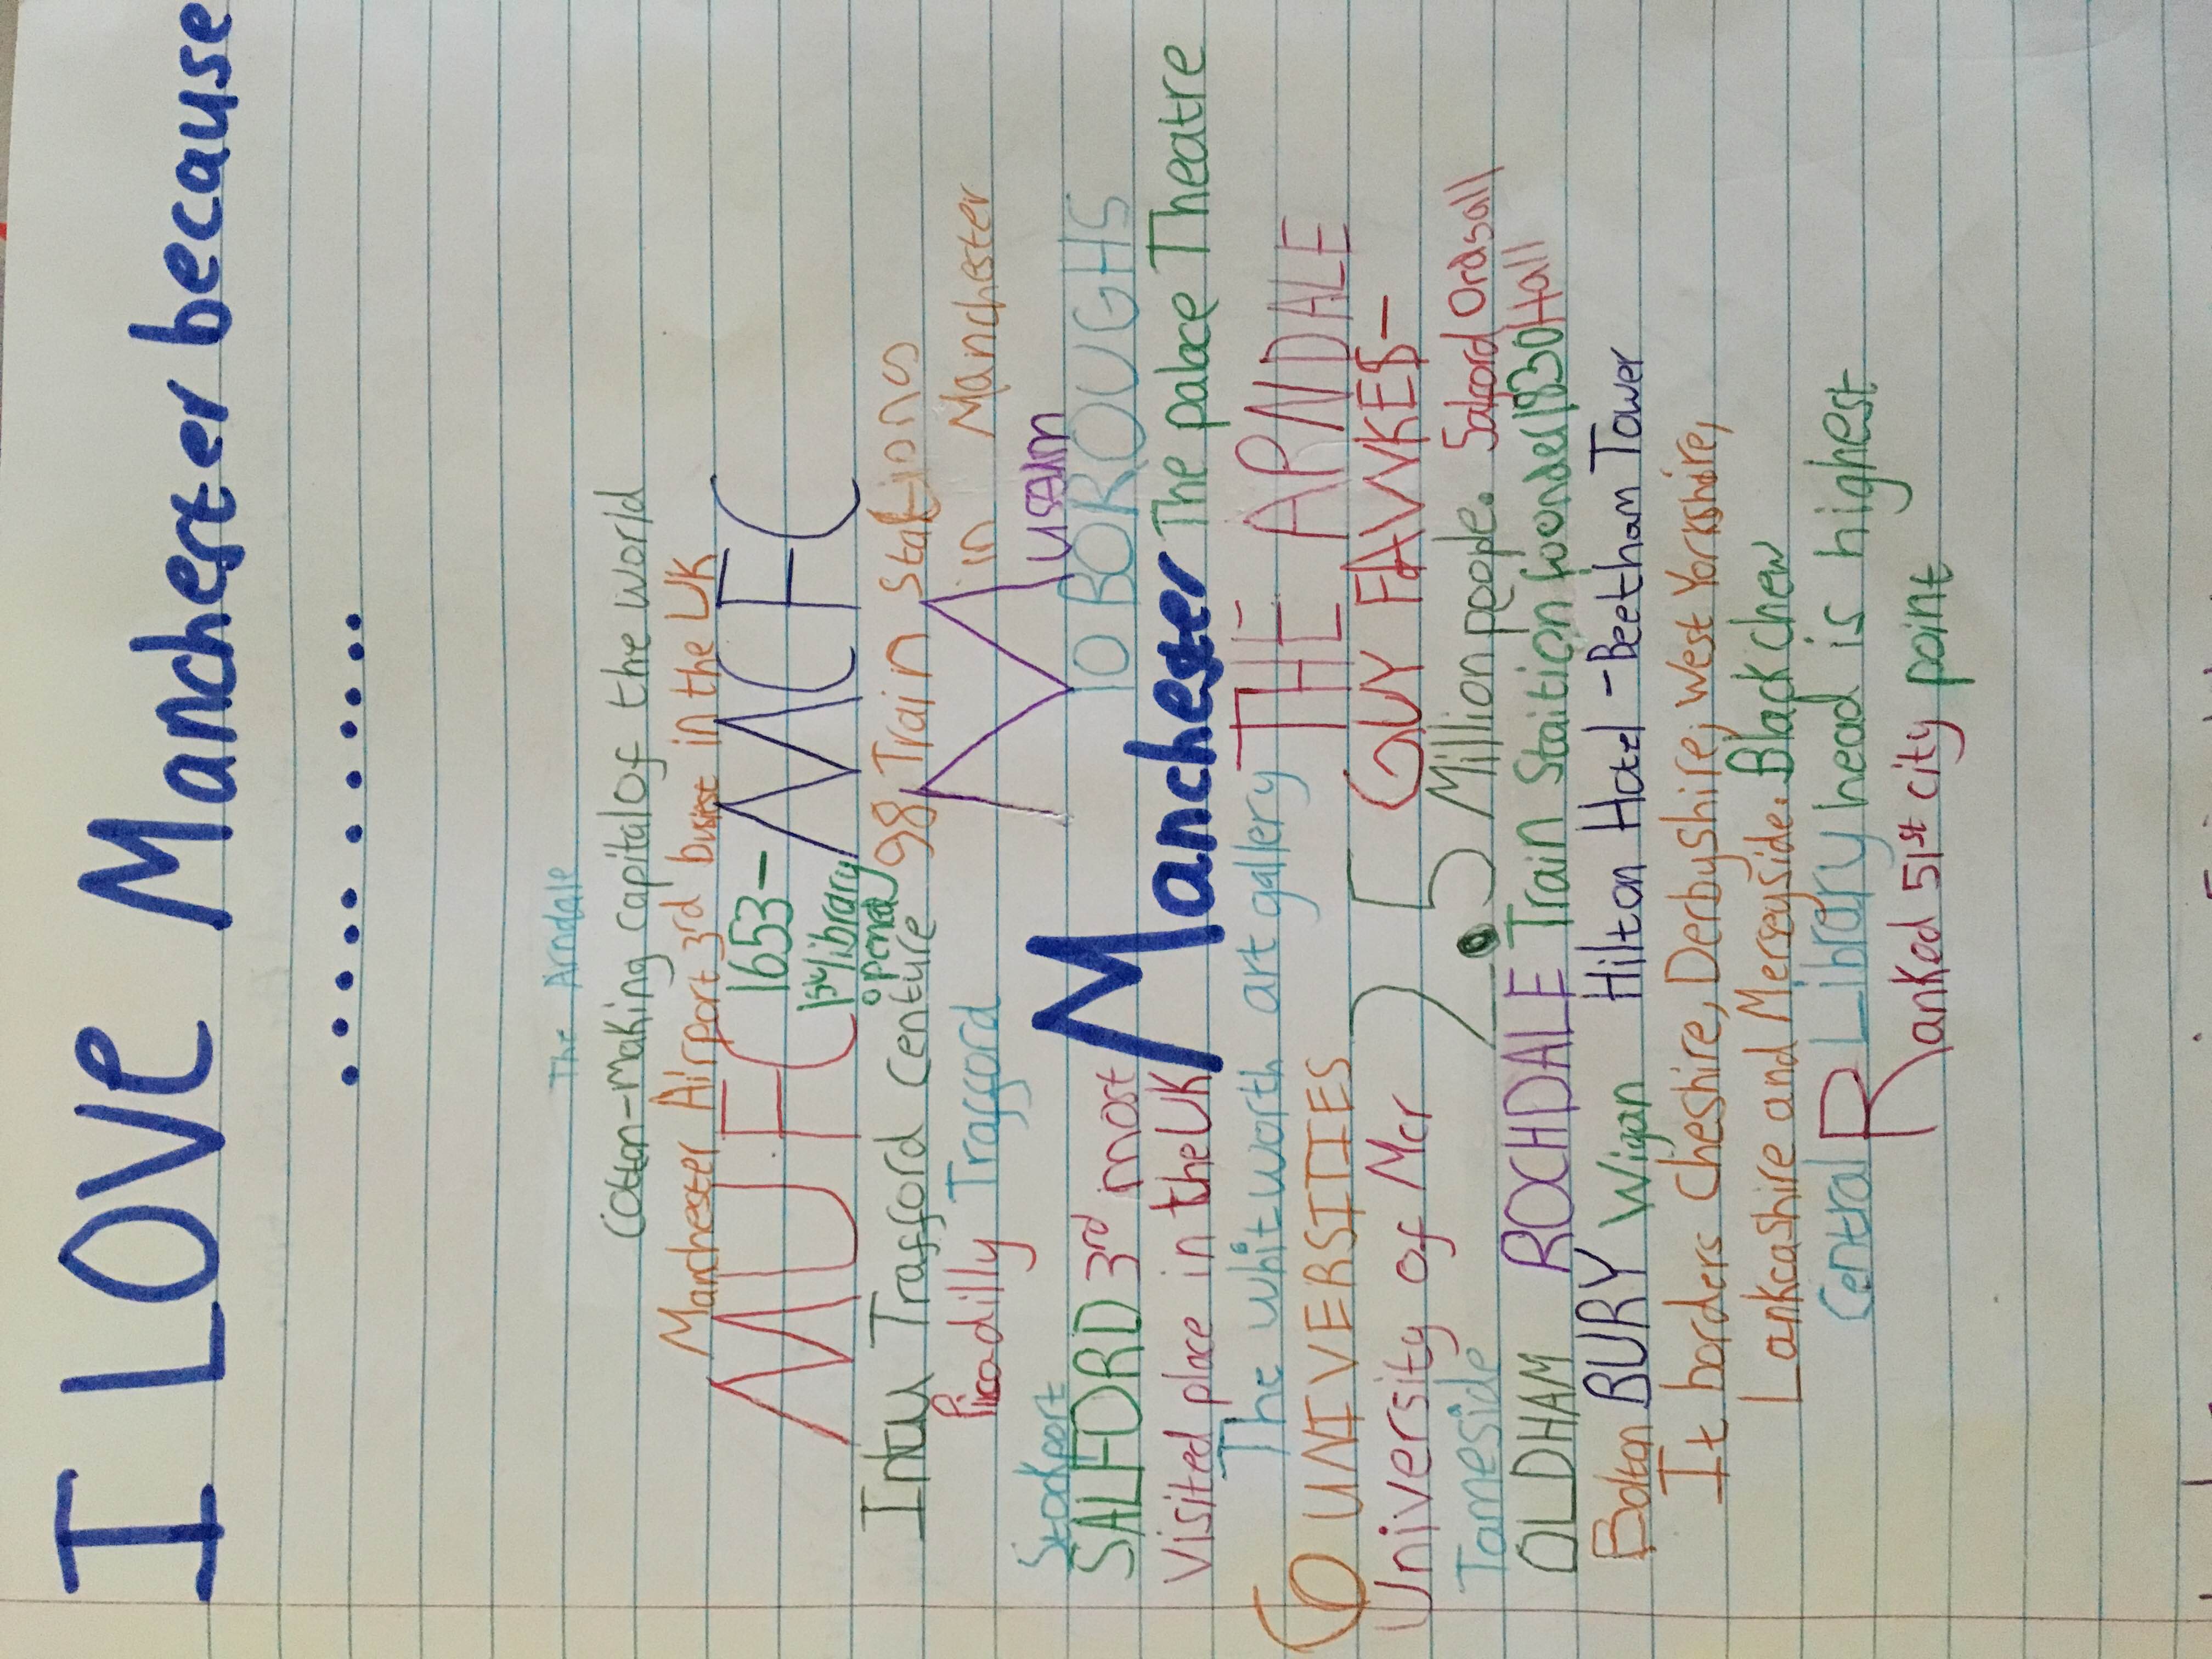 I LOVE Manchester because
..........
The Arndale
Cotton-Making capital of the World
Manchester Airport 3rd busiest in the UK
MUFC 1653- MCFC
1st library
opened
Intu Trafford Centure 98 Train Stations
Piccadilly Trafford in Manchester
Museum
Stockport
SALFORD 3rd most 10 BOROUGHS
Visited place in the UK Manchester The palace Theatre
The whitworth art gallery THE ARNDALE
6 UNIVERSITIES GUY FAWKES-
University of Mcr 2.5 Million people. Salford Ordsall
Hall
Tameside
OLDHAM ROCHDALE Train Staition founded 1830
Bolton BURY Wigan Hilton Hotel - Beetham Tower
It borders Cheshire, Derbyshire, West Yorkshire,
Lankcashire and Merseyside. Black chew
Central Library head is highest
Ranked 51st city point